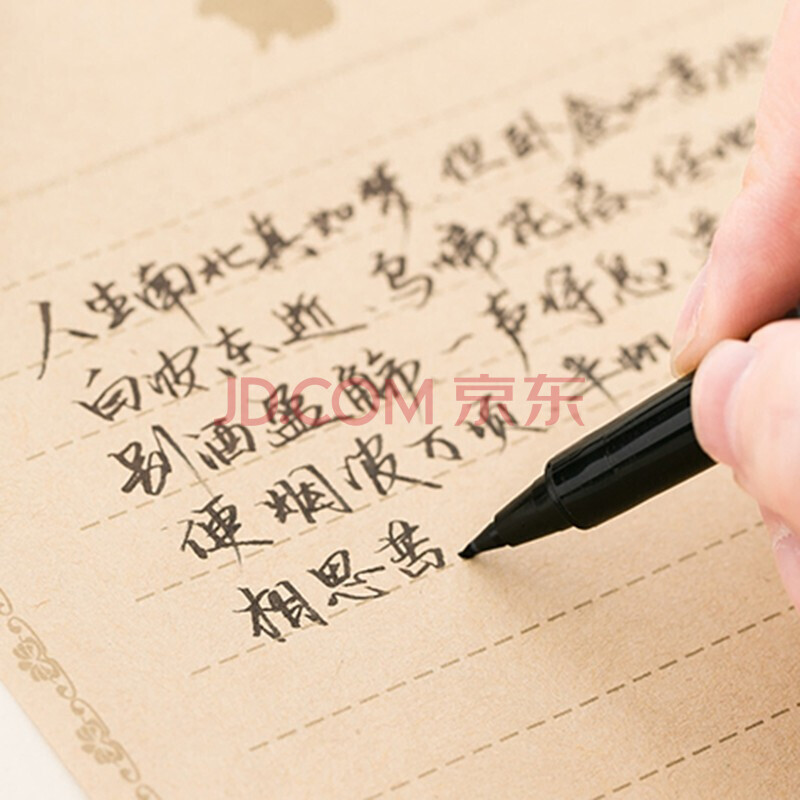 人生南北真如梦 但卧金山高
白波东逝 鸟啼花落 任他
别酒盈觞 一声将息
便烟波万顷 半
相思苦
JD.COM 京东